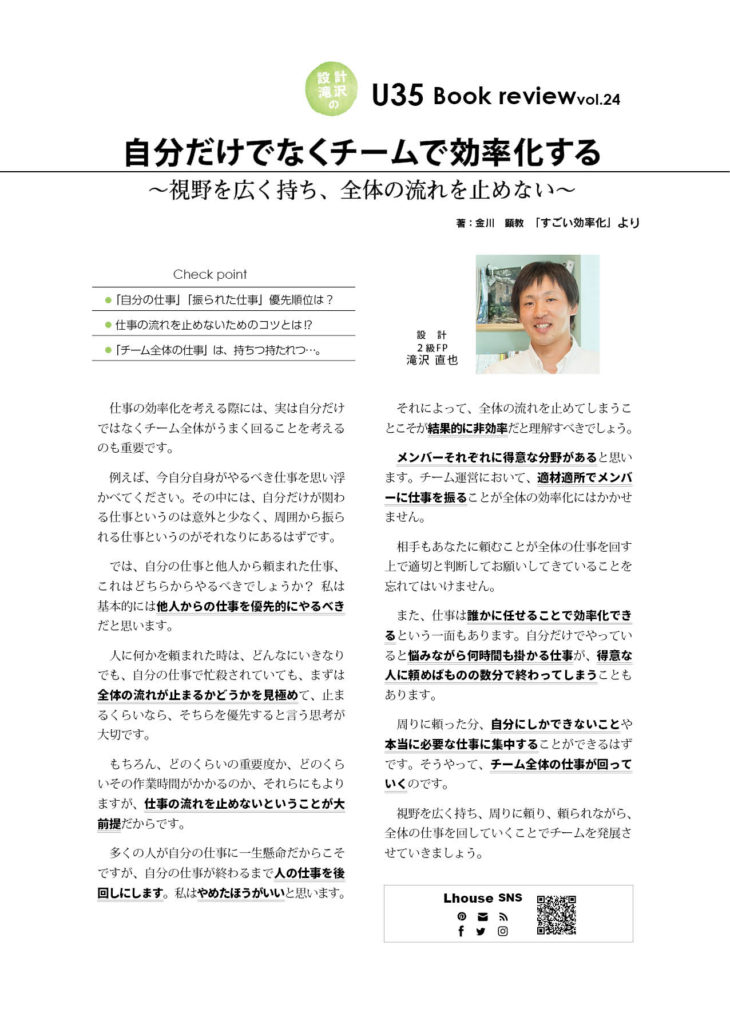 設計
滝沢の
U35 Book review vol.24
自分だけでなくチームで効率化する
～視野を広く持ち、全体の流れを止めない～
著：金川 顕教 「すごい効率化」より
Check point
●「自分の仕事」「振られた仕事」優先順位は？
●仕事の流れを止めないためのコツとは!?
●「チーム全体の仕事」は、持ちつ持たれつ…。
設 計
2級FP
滝沢 直也
仕事の効率化を考える際には、実は自分だけ
ではなくチーム全体がうまく回ることを考える
のも重要です。
例えば、今自分自身がやるべき仕事を思い浮
かべてください。その中には、自分だけが関わ
る仕事というのは意外と少なく、周囲から振ら
れる仕事というのがそれなりにあるはずです。
では、自分の仕事と他人から頼まれた仕事、
これはどちらからやるべきでしょうか？ 私は
基本的には他人からの仕事を優先的にやるべき
だと思います。
人に何かを頼まれた時は、どんなにいきなり
でも、自分の仕事で忙殺されていても、まずは
全体の流れが止まるかどうかを見極めて、止ま
るくらいなら、そちらを優先すると言う思考が
大切です。
もちろん、どのくらいの重要度か、どのくら
いその作業時間がかかるのか、それらにもより
ますが、仕事の流れを止めないということが大
前提だからです。
多くの人が自分の仕事に一生懸命だからこそ
ですが、自分の仕事が終わるまで人の仕事を後
回しにします。私はやめたほうがいいと思います。
それによって、全体の流れを止めてしまうこ
とこそが結果的に非効率だと理解すべきでしょう。
メンバーそれぞれに得意な分野があると思い
ます。チーム運営において、適材適所でメンバ
ーに仕事を振ることが全体の効率化にはかかせ
ません。
相手もあなたに頼むことが全体の仕事を回す
上で適切と判断してお願いしてきていることを
忘れてはいけません。
また、仕事は誰かに任せることで効率化でき
るという一面もあります。自分だけでやってい
ると悩みながら何時間も掛かる仕事が、得意な
人に頼めばものの数分で終わってしまうことも
あります。
周りに頼った分、自分にしかできないことや
本当に必要な仕事に集中することができるはず
です。そうやって、チーム全体の仕事が回って
いくのです。
視野を広く持ち、周りに頼り、頼られながら、
全体の仕事を回していくことでチームを発展さ
せていきましょう。
Lhouse SNS